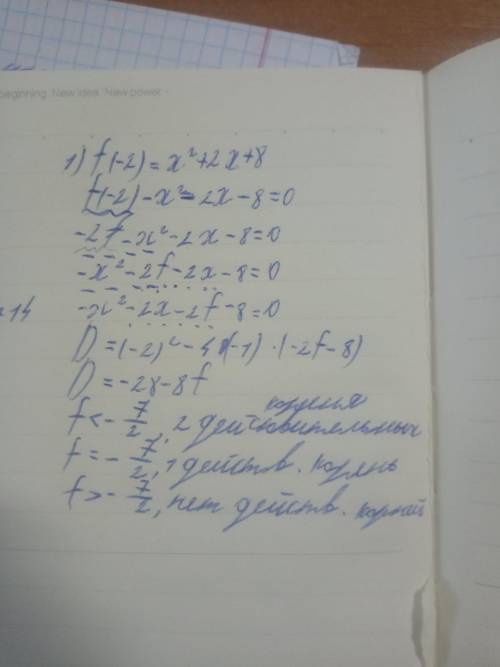 beginning. New idea. New power -
1) f(-2) = x²+2x+8
f(-2)-x²-2x-8=0
-2f-x²-2x-8=0
-x²-2f-2x-8=0
-x²-2x-2f-8=0
14
D=(-2)²-4·(-1)·(-2f-8)
D=-28-8f
корня
f<-7/2, 2 действительных
f=-7/2, 1 действ. корень
f>-7/2, нет действ. корней